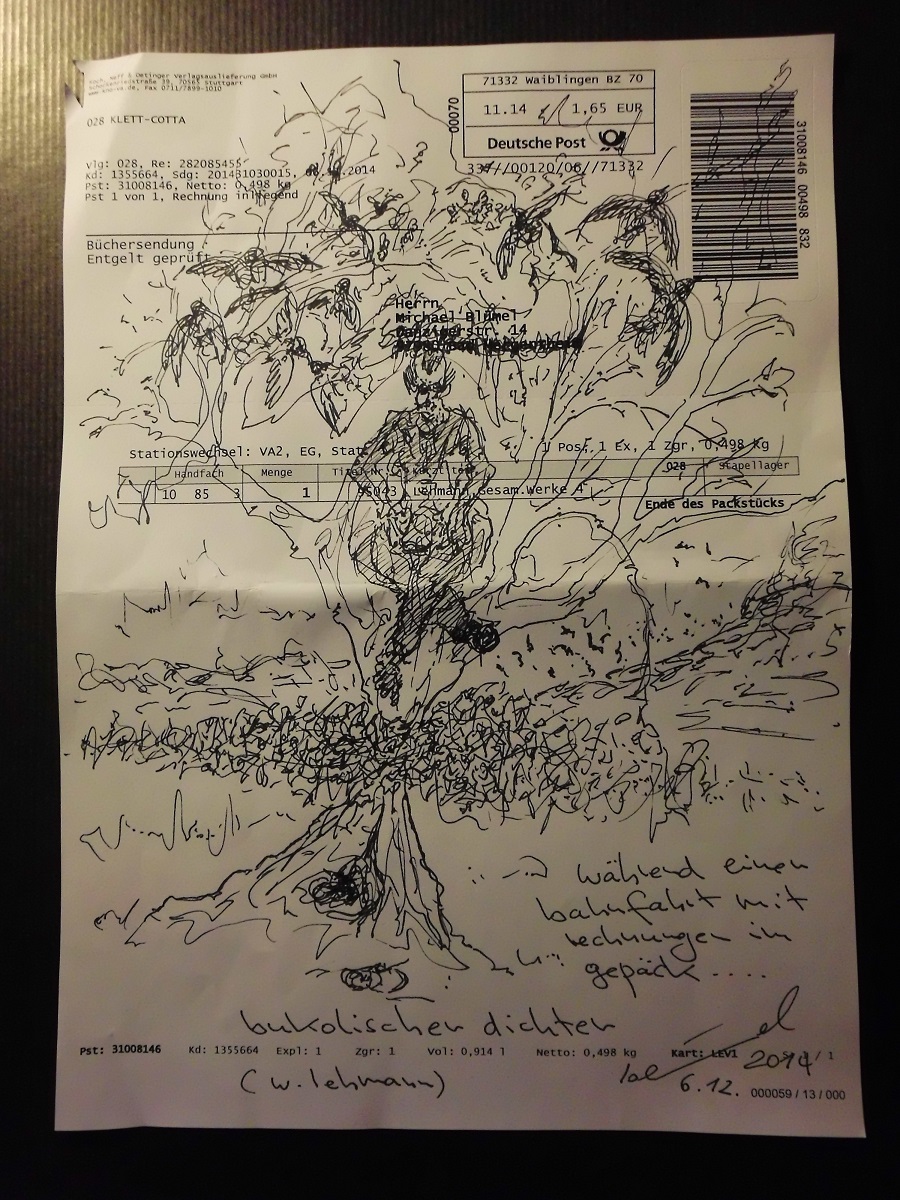 Koch, Neff & Oetinger Verlagsauslieferung GmbH
Schockenriedstraße 39, 70565 Stuttgart
Fax 0711/7899-1010
028 KLETT-COTTA
71332 Waiblingen BZ 70
11.14 1,65 EUR
Deutsche Post
00070
31008146 00498 832
Vlg: 028, Re: 282085455
Kd: 1355664, Sdg: 201431030015, .2014
Pst: 31008146, Netto: 0,498 kg
Pst 1 von 1, Rechnung inliegend
Büchersendung
Entgelt geprüft
Herrn
Michael Blümel
Danzigerstr. 14
Stationswechsel: VA2, EG, Stat
1 Pos, 1 Ex, 1 Zgr, 0,498 Kg
Handfach Menge Titel-Nr. Kurztitel 028 Stapellager
10 85 3 1 95043 Lehmann,Gesam.Werke 4
Ende des Packstücks
während einen
bahnfahrt mit
rechnungen im
gepäck ....
bukolischer dichter
Pst: 31008146 Kd: 1355664 Expl: 1 Zgr: 1 Vol: 0,914 l Netto: 0,498 kg Kart: LEV1 / 1
(w. lehmann)
2014
6.12.
000059 / 13 / 000